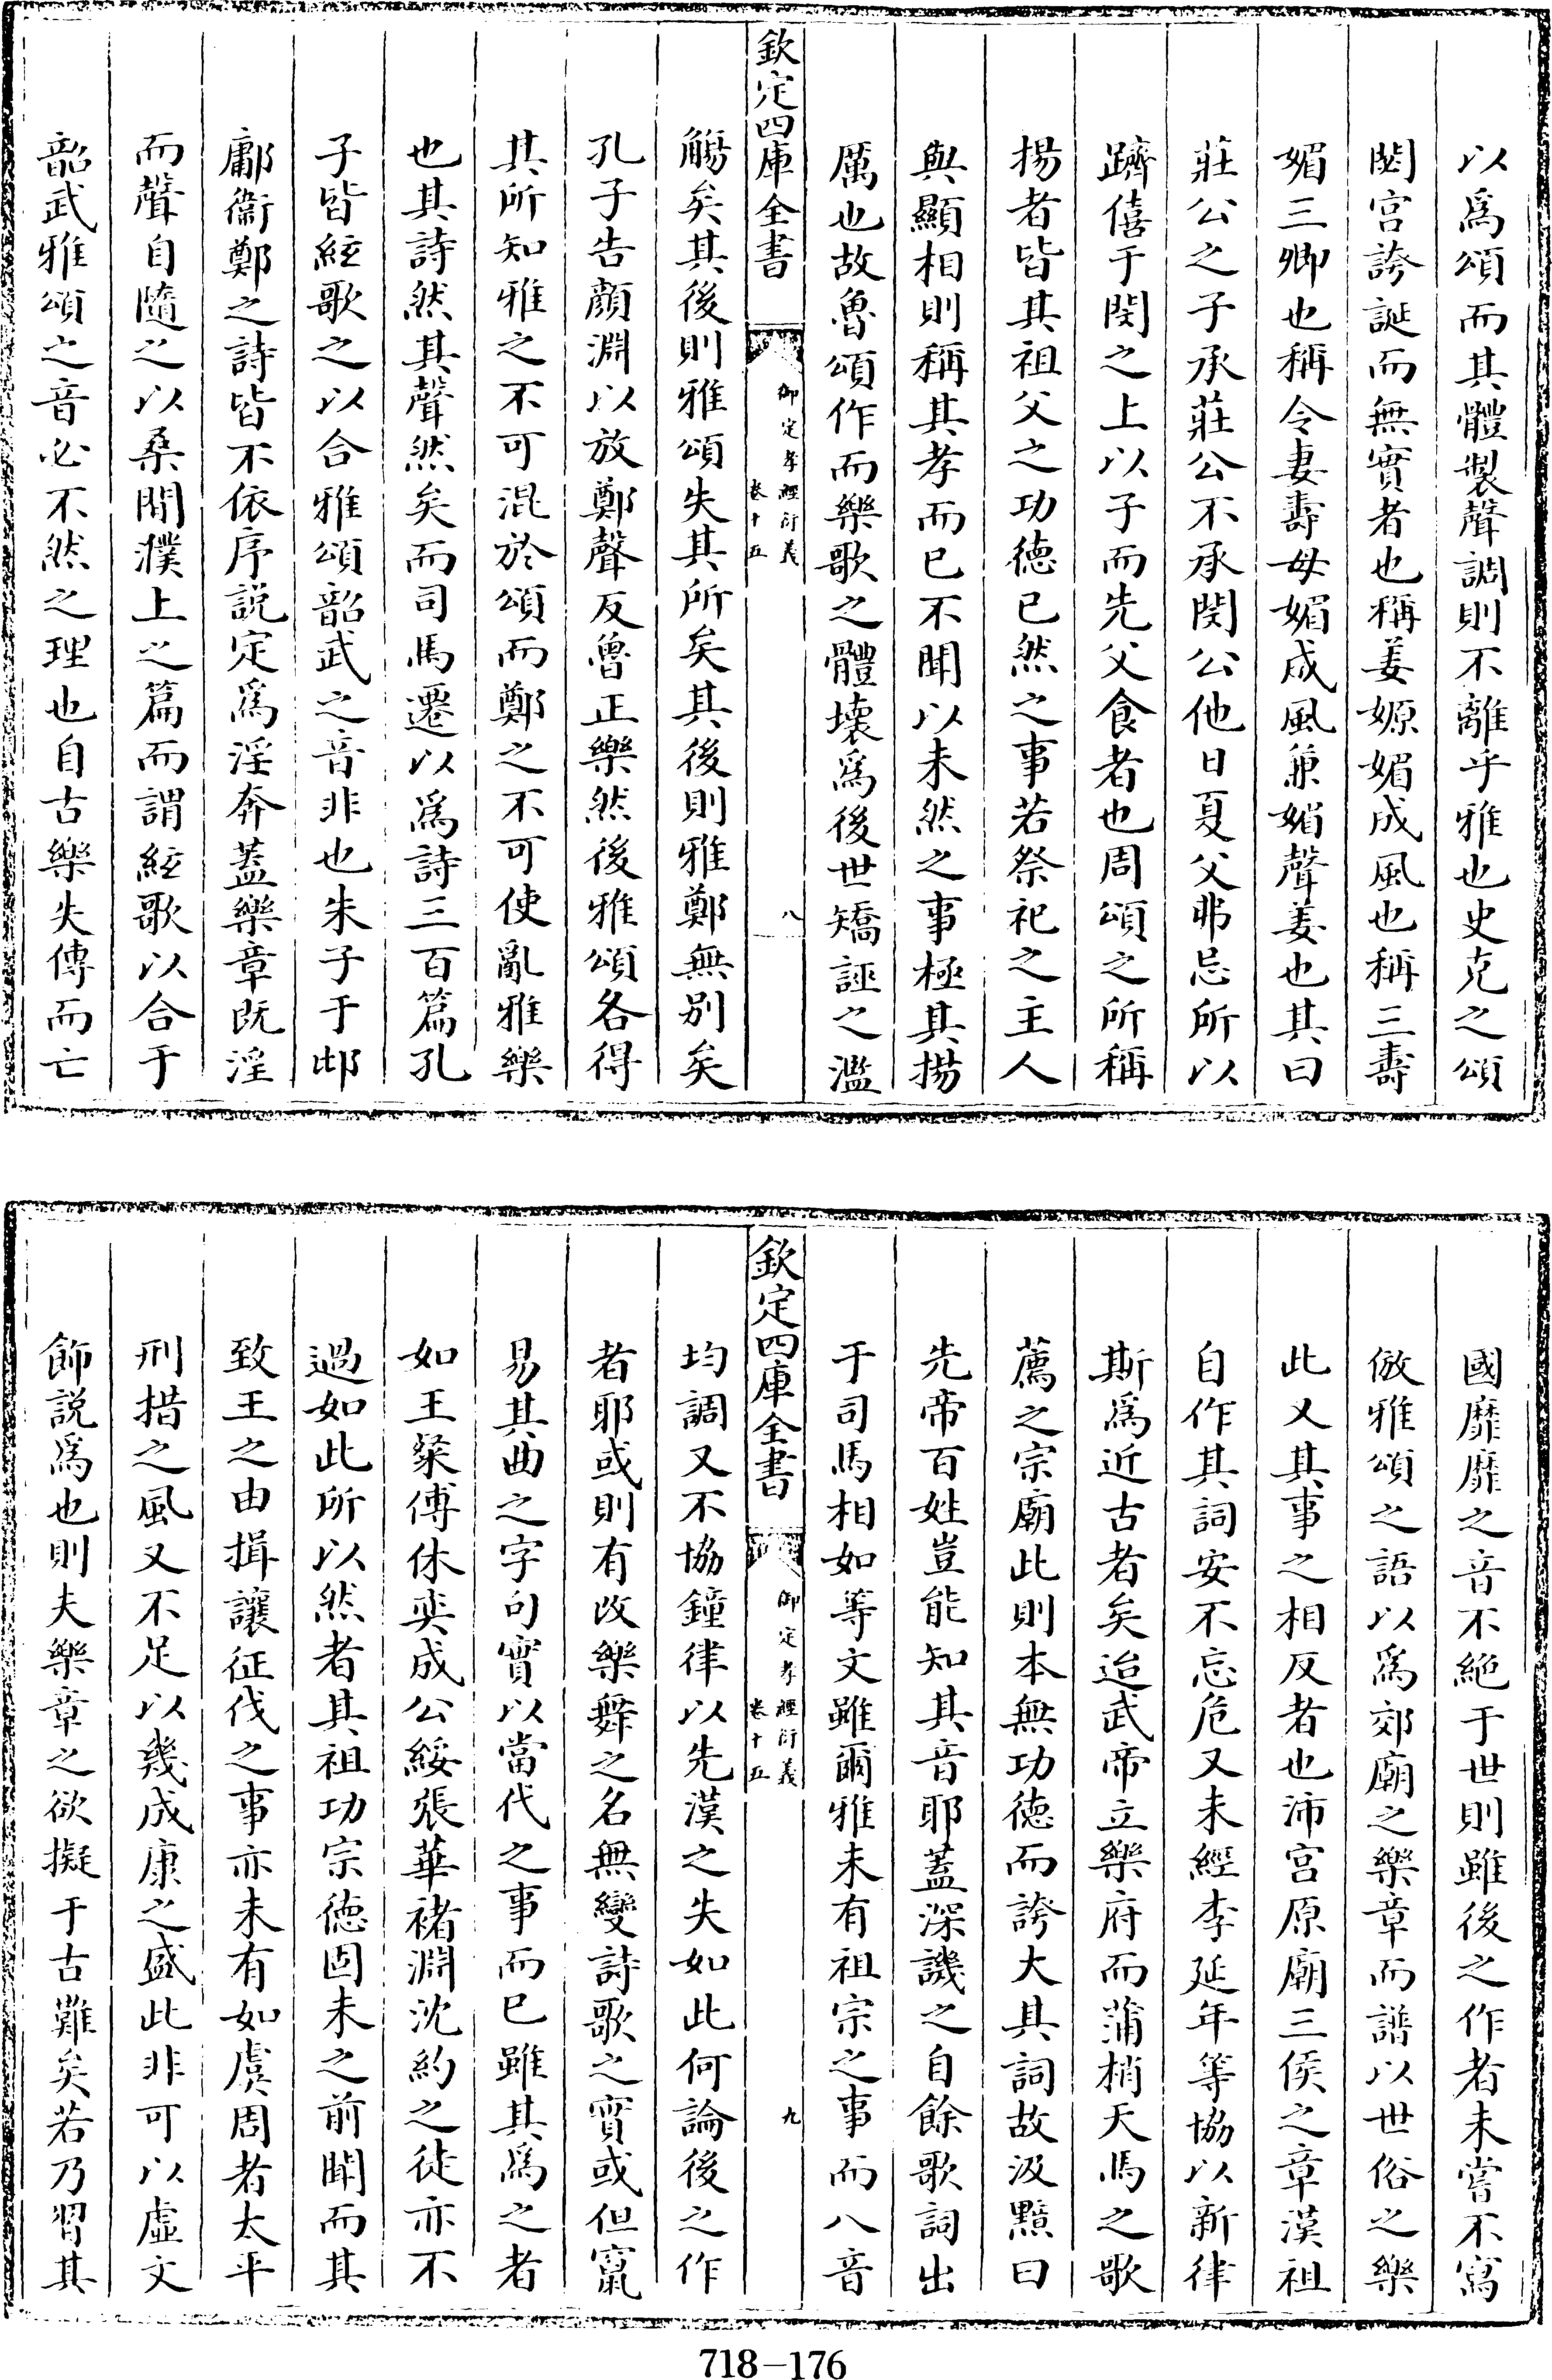 以爲頌而其體製聲調則不離乎雅也史克之頌
閟宮誇誕而無實者也稱姜嫄媚成風也稱三壽
媚三卿也稱令妻壽母媚成風兼媚聲姜也其曰
莊公之子承莊公不承閔公他日夏父弗忌所以
躋僖于閔之上以子而先父食者也周頌之所稱
揚者皆其祖父之功德已然之事若祭祀之主人
與顯相則稱其孝而已不聞以未然之事極其揚
厲也故魯頌作而樂歌之體壞爲後世矯誣之濫
欽定四庫全書
御定孝經衍義
卷十五
八
觴矣其後則雅頌失其所矣其後則雅鄭無別矣
孔子告顏淵以放鄭聲反魯正樂然後雅頌各得
其所知雅之不可混於頌而鄭之不可使亂雅樂
也其詩然其聲然矣而司馬遷以爲詩三百篇孔
子皆絃歌之以合雅頌韶武之音非也朱子于邶
鄘衞鄭之詩皆不依序説定爲淫奔蓋樂章既淫
而聲自隨之以桑間濮上之篇而謂絃歌以合于
韶武雅頌之音必不然之理也自古樂失傳而亡
國靡靡之音不絶于世則雖後之作者未嘗不寫
倣雅頌之語以爲郊廟之樂章而譜以世俗之樂
此又其事之相反者也沛宮原廟三侯之章漢祖
自作其詞安不忘危又未經李延年等協以新律
斯爲近古者矣迨武帝立樂府而蒲梢天馬之歌
薦之宗廟此則本無功德而誇大其詞故汲黯曰
先帝百姓豈能知其音耶蓋深譏之自餘歌詞出
于司馬相如等文雖爾雅未有祖宗之事而八音
欽定四庫全書
御定孝經衍義
卷十五
九
均調又不協鐘律以先漢之失如此何論後之作
者耶或則有改樂舞之名無變詩歌之實或但竄
易其曲之字句實以當代之事而已雖其爲之者
如王粲傅休奕成公綏張華褚淵沈約之徒亦不
過如此所以然者其祖功宗德固未之前聞而其
致王之由揖讓征伐之事亦未有如虞周者太平
刑措之風又不足以幾成康之盛此非可以虛文
飾説爲也則夫樂章之欲擬于古難矣若乃習其
718-176